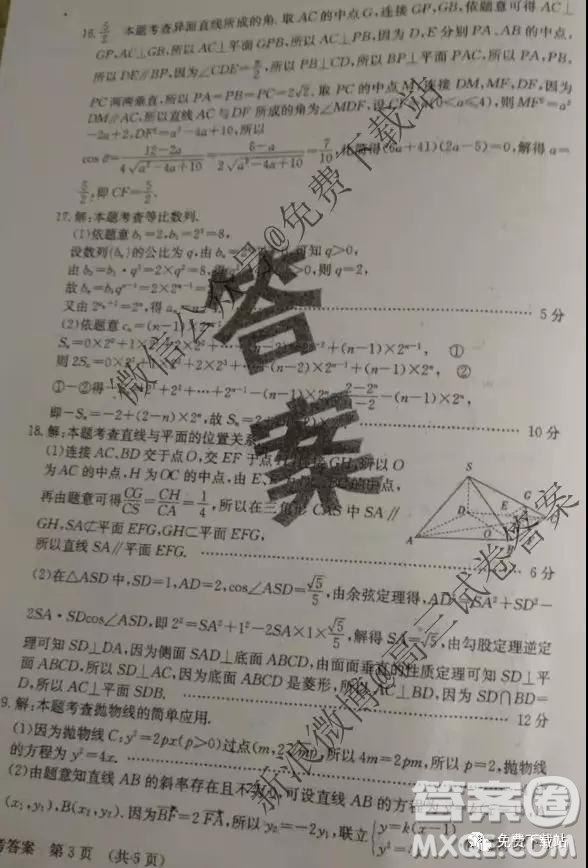 16. 5/2 本题考查异面直线所成的角. 取AC的中点G,连接GP,GB,依题意可得AC⊥
GP,AC⊥GB,所以AC⊥平面GPB,所以AC⊥PB,因为D,E分别PA、AB的中点,
所以DE∥BP,因为∠CDE=π/2,所以PB⊥CD,所以BP⊥平面PAC,所以PA,PB,
PC两两垂直,所以PA=PB=PC=2√2. 取PC的中点M,连接DM,MF,DF,因为
DM∥AC,所以直线AC与DF所成的角为∠MDF,设 (0≤a≤4),则MF²=a²
-2a+2,DF²=a²-4a+10,所以
cos θ=(12-2a)/(4√(a²-4a+10))=(6-a)/(2√(a²-4a+10))=7/10,化简得(6a+41)(2a-5)=0,解得a=
5/2,即CF=5/2.
17.解:本题考查等比数列.
(1)依题意b₁=2,b₃=2³=8,
设数列{bₙ}的公比为q,由bₙ= 可知q>0,
由b₃=b₁·q²=2×q²=8,得 >0,则q=2,
故bₙ=b₁qⁿ⁻¹=2×2ⁿ⁻¹
又由2 =2ⁿ,得a 5分
(2)依题意cₙ=(n-1)×2ⁿ⁻¹
Sₙ=0×2⁰+1×2 +(n-1)×2ⁿ⁻¹, ①
则2Sₙ=0×2¹+1×2²+2×2³+ +(n-1)×2ⁿ, ②
①-②得 2²+…+2ⁿ⁻¹-(n-1)×2ⁿ= -(n-1)×2ⁿ,
即-Sₙ=-2+(2-n)×2ⁿ,故Sₙ= 10分
18.解:本题考查直线与平面的位置关系.
(1)连接AC,BD交于点O,交EF于点H,连接GH,所以O
为AC的中点,H为OC的中点,由E、
再由题意可得CG/CS=CH/CA=1/4,所以在三角形CAS中SA∥
GH,SA⊄平面EFG,GH⊂平面EFG,
所以直线SA∥平面EFG. 6分
S
D
E
G
O
A
B
(2)在△ASD中,SD=1,AD=2,cos∠ASD=√5/5,由余弦定理得,AD²=SA²+SD²-
2SA·SDcos∠ASD,即2²=SA²+1²-2SA×1×√5/5,解得SA=√5,由勾股定理逆定
理可知SD⊥DA,因为侧面SAD⊥底面ABCD,由面面垂直的性质定理可知SD⊥平
面ABCD,所以SD⊥AC,因为底面ABCD是菱形,所以AC⊥BD,因为SD∩BD=
D,所以AC⊥平面SDB. 12分
9.解:本题考查抛物线的简单应用.
(1)因为抛物线C:y²=2px(p>0)过点(m,2√m),所以4m=2pm,所以p=2,抛物线
的方程为y²=4x.
(2)由题意知直线AB的斜率存在且不为0,可设直线AB的方程
(x₁,y₁),B(x₂,y₂).因为BF=2FA,所以y₂=-2y₁,联立{y=k(x-1)
考答案 第3页 (共5页)
答案
微信公众号@免费下载站
新浪微博@高三试卷答案
答案圈
免费下载站